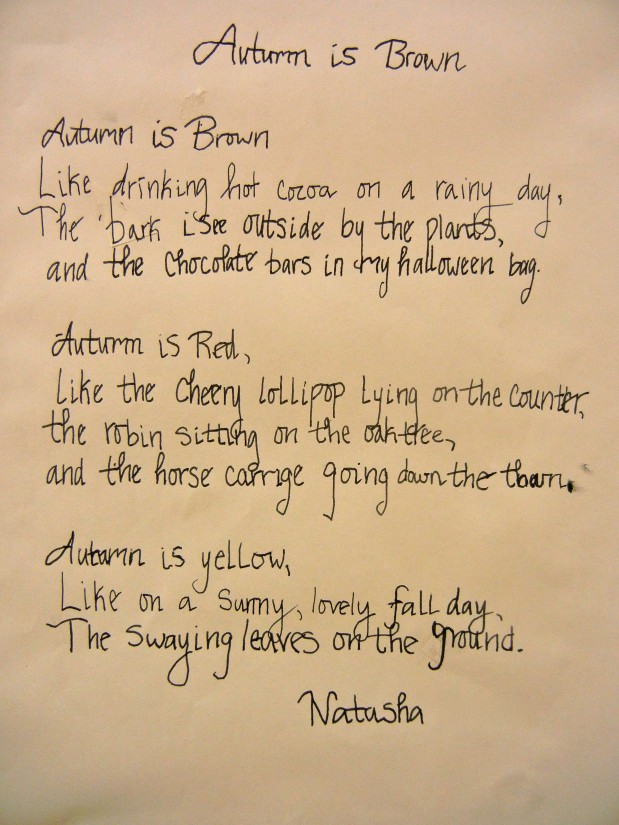 Autumn is Brown
Autumn is Brown
Like drinking hot cocoa on a rainy day,
The bark i see outside by the plants,
and the chocolate bars in my halloween bag.
Autumn is Red,
Like the Cheery lollipop lying on the counter,
the robin sitting on the oak tree,
and the horse carrige going down the town.
Autumn is yellow,
Like on a sunny, lovely fall day,
The swaying leaves on the ground.
Natasha